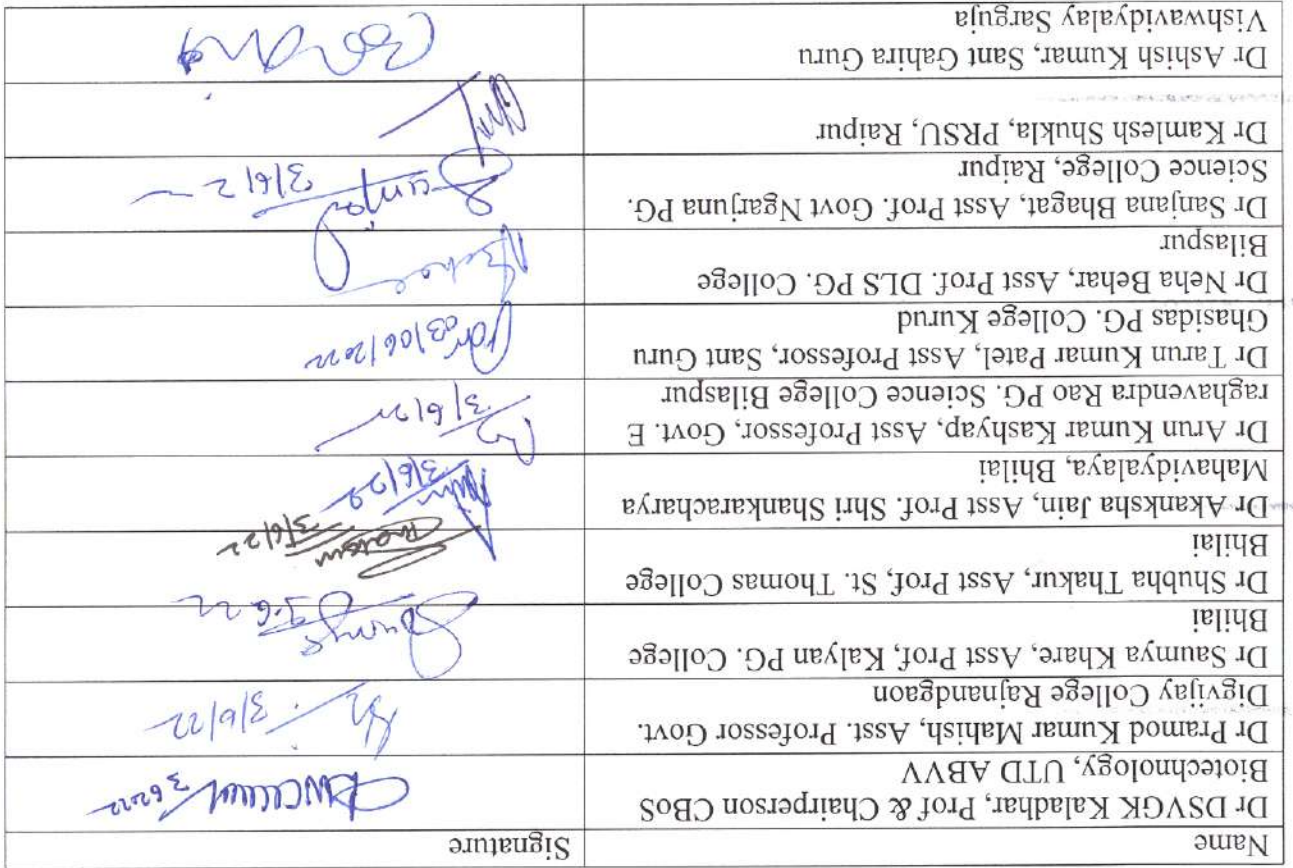 Name Signature
Dr DSVGK Kaladhar, Prof & Chairperson CBoS
Biotechnology, UTD ABVV
3 6 2022
Dr Pramod Kumar Mahish, Asst. Professor Govt.
Digvijay College Rajnandgaon
3/6/22
Dr Saumya Khare, Asst Prof, Kalyan PG. College
Bhilai
3.6.22
Dr Shubha Thakur, Asst Prof, St. Thomas College
Bhilai
3/6/22
Dr Akanksha Jain, Asst Prof. Shri Shankaracharya
Mahavidyalaya, Bhilai
3/6/22
Dr Arun Kumar Kashyap, Asst Professor, Govt. E
raghavendra Rao PG. Science College Bilaspur
3/6/22
Dr Tarun Kumar Patel, Asst Professor, Sant Guru
Ghasidas PG. College Kurud
03/06/2022
Dr Neha Behar, Asst Prof. DLS PG. College
Bilaspur
Dr Sanjana Bhagat, Asst Prof. Govt Ngarjuna PG.
Science College, Raipur
3/6/2
Dr Kamlesh Shukla, PRSU, Raipur
Dr Ashish Kumar, Sant Gahira Guru
Vishwavidyalay Sarguja